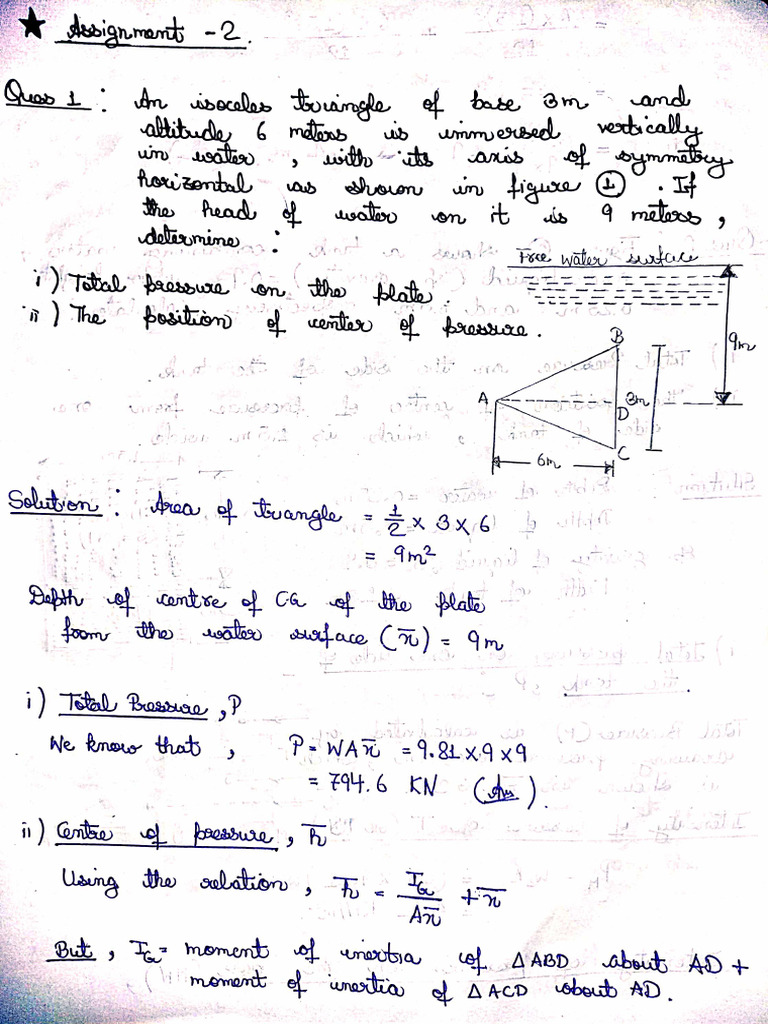 ★ Assignment - 2.
Ques 1 : An isoceles triangle of base 3m and
altitude 6 meters is immersed vertically
in water, with its axis of symmetry
horizontal as shown in figure ①. If
the head of water on it is 9 meters,
determine :
i) Total pressure on the plate.
ii) The position of center of pressure.
Free water surface
9m
B
A
3m
D
C
6m
Solution : Area of triangle = 1/2 × 3 × 6
= 9m²
Depth of centre of CG of the plate
from the water surface (x̄) = 9m
i) Total Pressure, P
We know that, P = WAx̄ = 9.81×9×9
= 794.6 KN (Ans).
ii) Centre of pressure, h̄
Using the relation, h̄ = I_G/Ax̄ + x̄
But, I_G = moment of inertia of ΔABD about AD +
moment of inertia of ΔACD about AD.